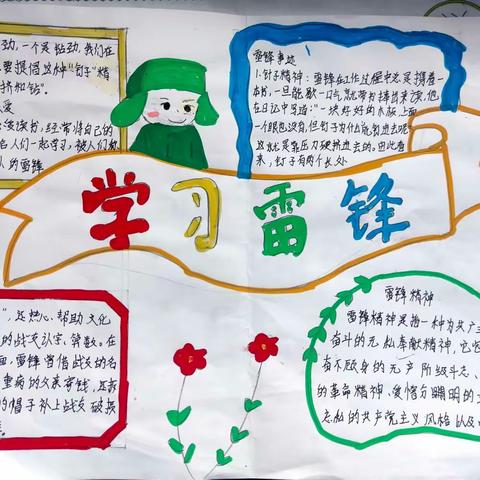 劲,一个是钻劲,我们在
要提倡这种"钉子"精
挤和钻。
读书,经常将自己的
人们一起学习,被人们
人的雷锋
雷锋事迹
1.钉子精神:雷锋在工作过程中总是揣着一
本书,一旦能歇一口气,就带书择出来读,他
在日记中写道:"一块好好的木板,上面
一个眼也没有,但钉子为什么能钉进去呢
这就是靠压力硬挤进去的,由此看
来,钉子有两个长处
学习雷锋
",还热心、帮助文化
的战友认字、算数。在
雷锋曾借战友的名
重病的父亲寄钱,还
的帽子补上战友破损
雷锋精神
雷锋精神是指一种为共产
奋斗的无私奉献精神,它
奋不顾身的无产阶级斗志、
的革命精神、爱憎分明的
忘私的共产党主义风格以及